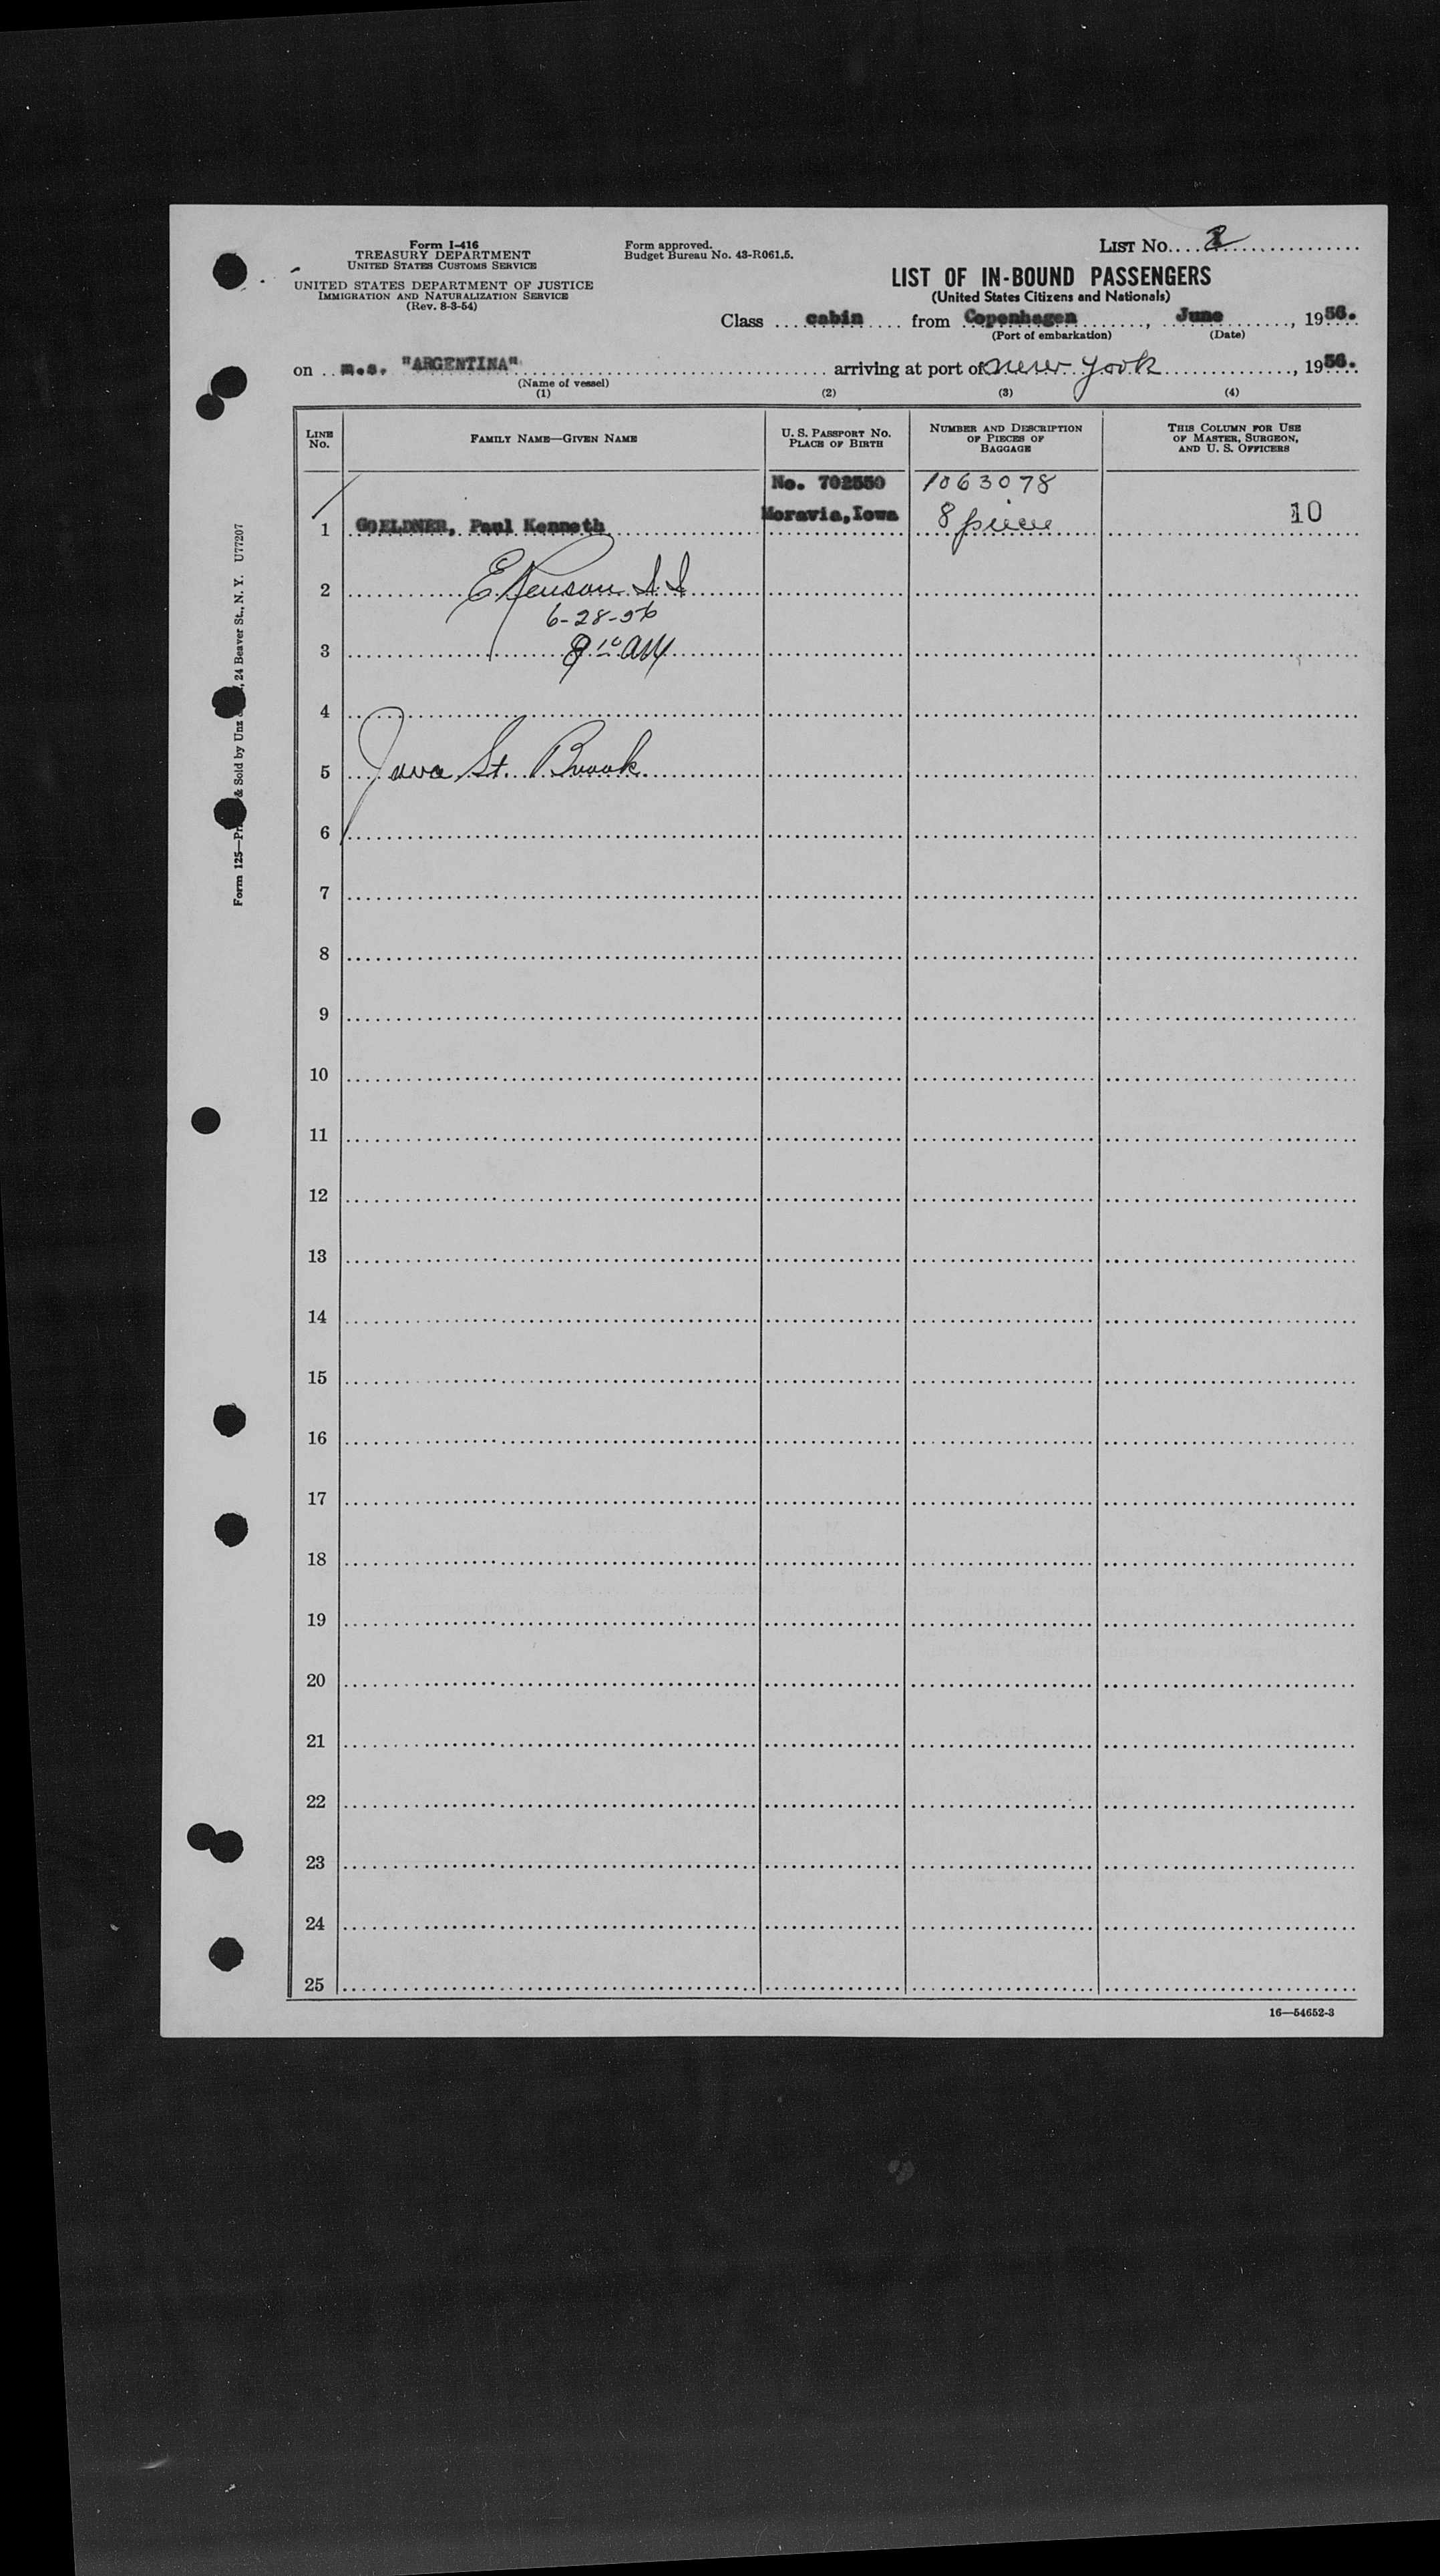 Form I-416
TREASURY DEPARTMENT
UNITED STATES CUSTOMS SERVICE
UNITED STATES DEPARTMENT OF JUSTICE
IMMIGRATION AND NATURALIZATION SERVICE
(Rev. 8-3-54)
Form approved.
Budget Bureau No. 43-R061.5.
LIST No.
LIST OF IN-BOUND PASSENGERS
(United States Citizens and Nationals)
Class cabin from Copenhagen, June, 1956.
(Port of embarkation) (Date)
on m.s. "ARGENTINA" arriving at port of New York, 1956.
(Name of vessel)
(1) (2) (3) (4)
LINE No. FAMILY NAME—GIVEN NAME U. S. PASSPORT No. PLACE OF BIRTH NUMBER AND DESCRIPTION OF PIECES OF BAGGAGE THIS COLUMN FOR USE OF MASTER, SURGEON, AND U. S. OFFICERS
No. 702550 1063078
1 GOELDNER, Paul Kenneth Moravia, Iowa 8 piece 10
2
6-28-56
3 AM
4
5 Java St. Brook
6
7
8
9
10
11
12
13
14
15
16
17
18
19
20
21
22
23
24
25
16—54652-3
Form 125— & Sold by Unz 24 Beaver St., N. Y. U77207